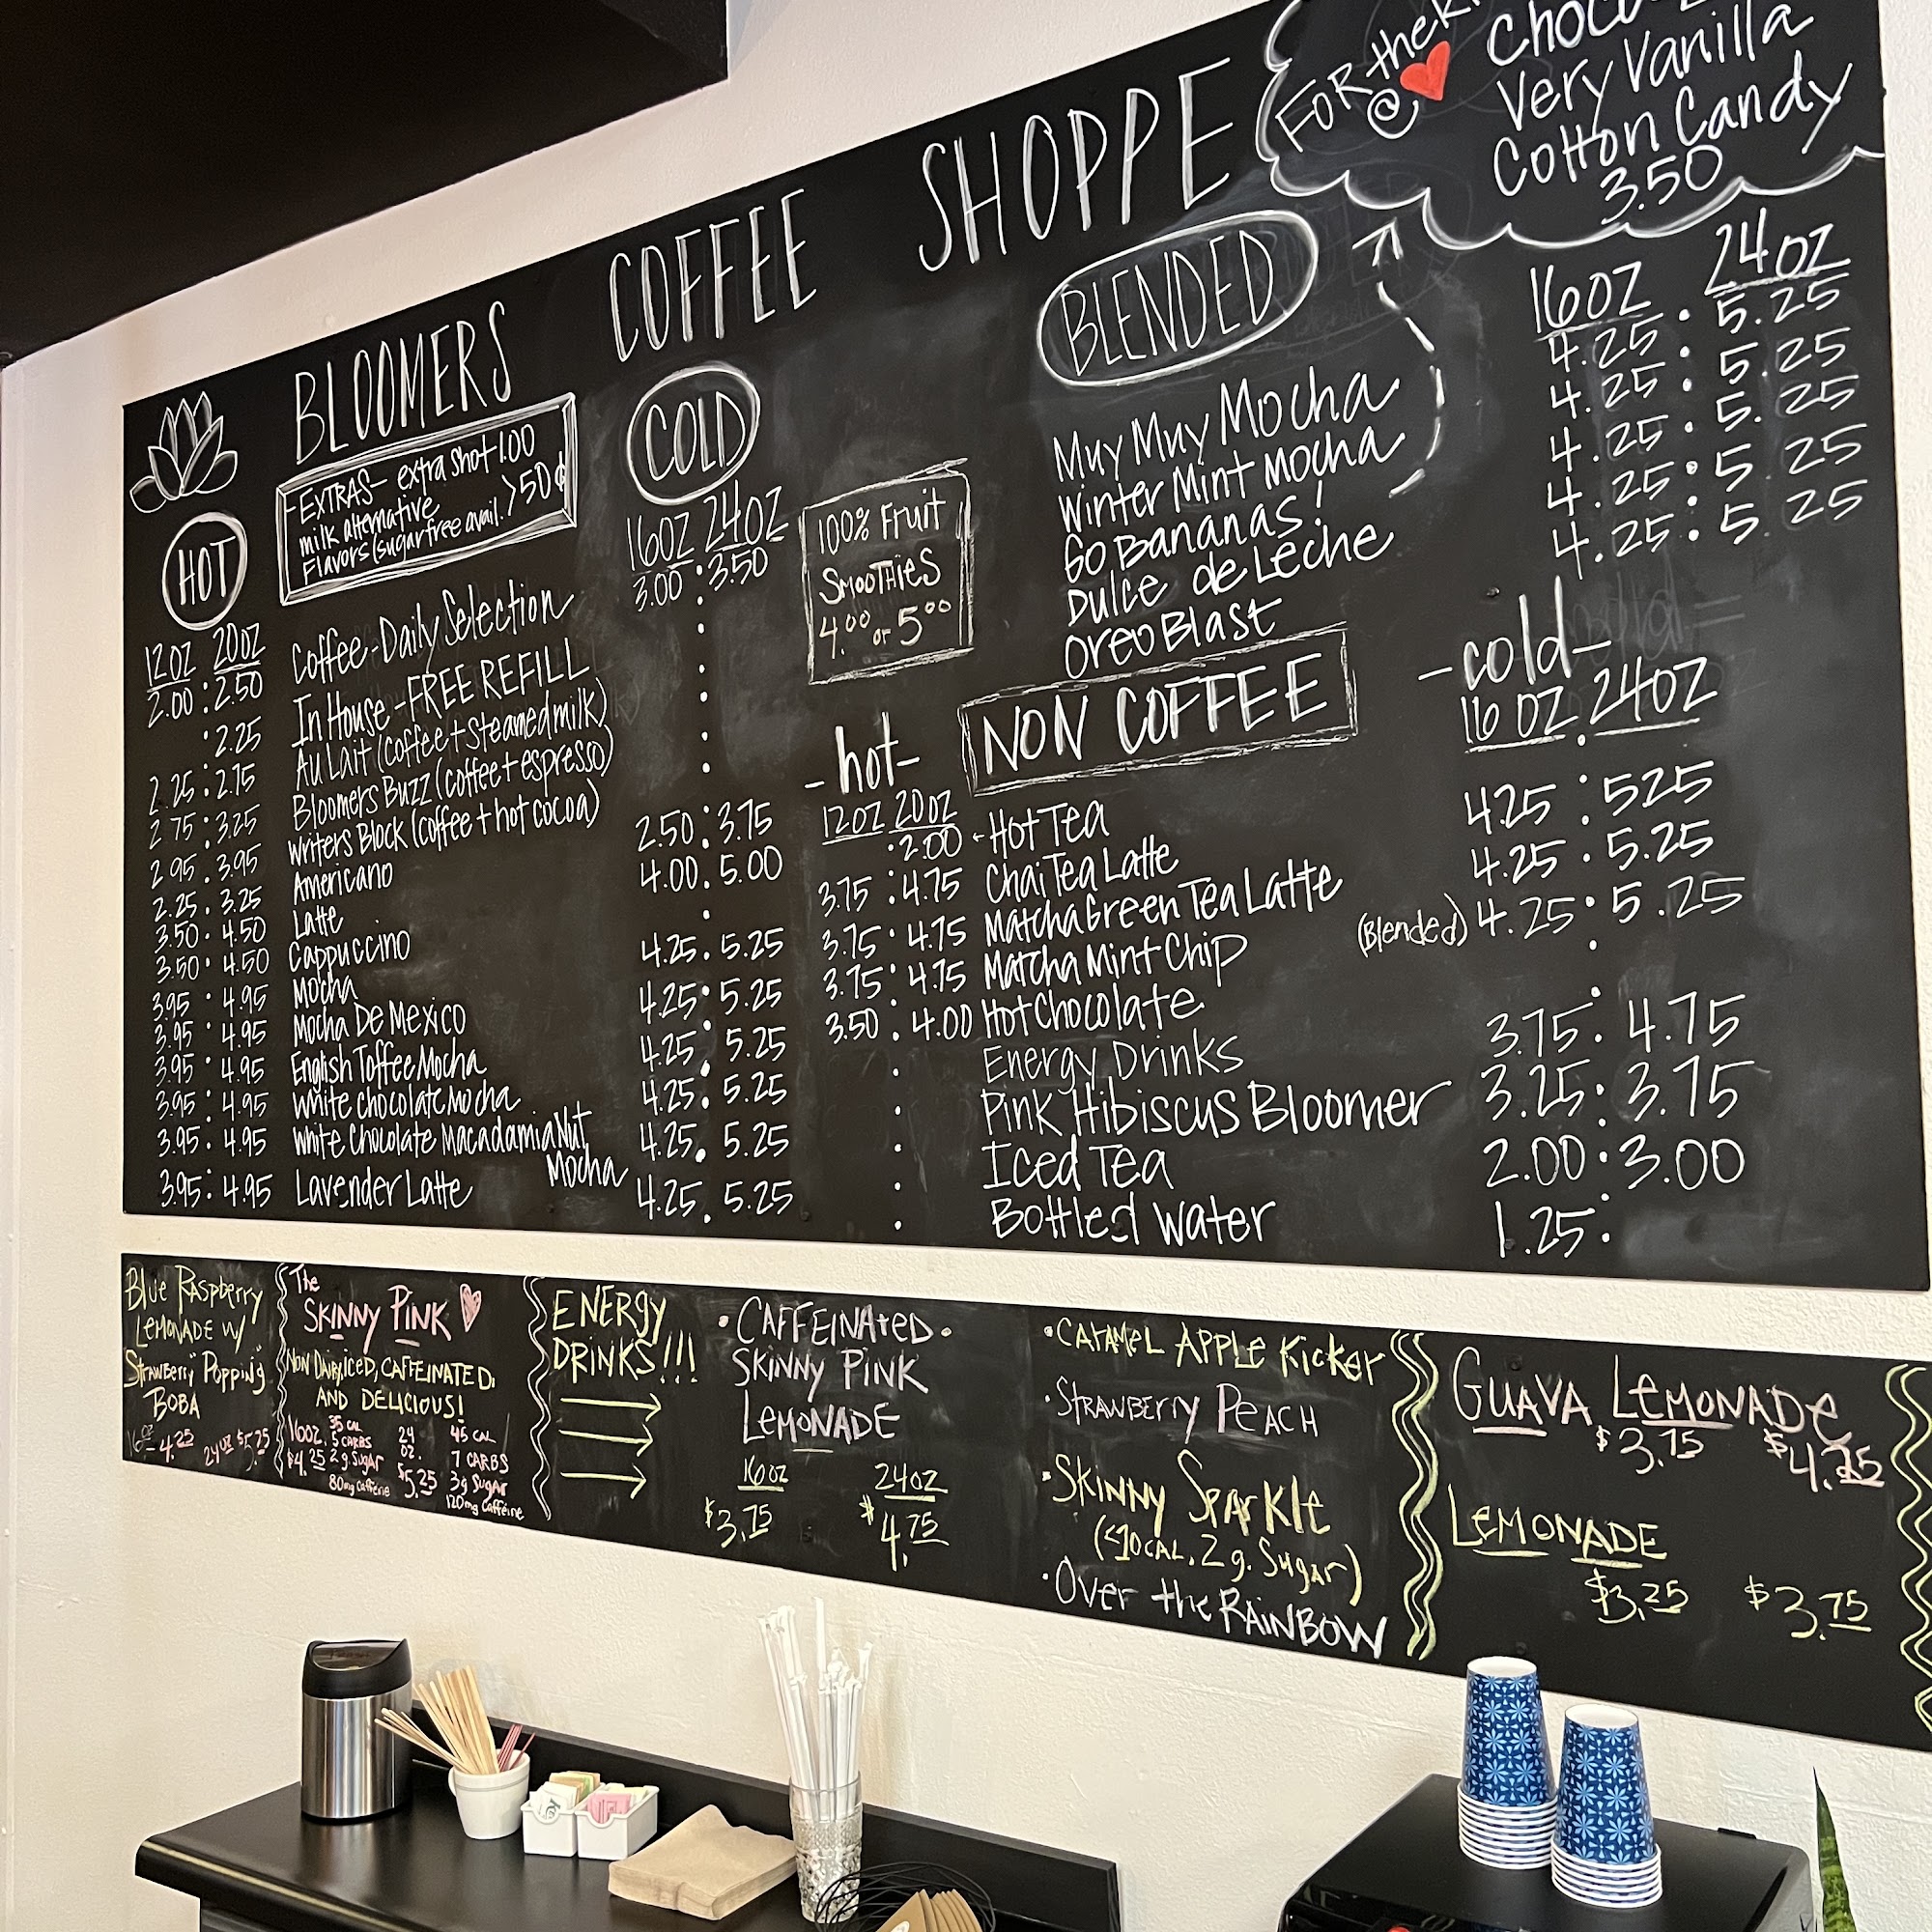 BLOOMERS COFFEE SHOPPE
EXTRAS- extra shot 1.00
milk alternative
Flavors (sugarfree avail.) > 50¢
HOT
12oz 20oz
COLD
16oz 24oz
2.00 : 2.50 Coffee-Daily Selection 3.00 · 3.50
· 2.25 In House-FREE REFILL
2.25 : 2.75 Au Lait (coffee + steamed milk)
2.75 : 3.25 Bloomers Buzz (coffee + espresso)
2.95 . 3.95 Writers Block (coffee + hot cocoa)
2.25 . 3.25 Americano 2.50 : 3.75
3.50 · 4.50 Latte 4.00 . 5.00
3.50 · 4.50 Cappuccino
3.95 · 4.95 Mocha 4.25 . 5.25
3.95 · 4.95 Mocha De Mexico 4.25 · 5.25
3.95 · 4.95 English Toffee Mocha 4.25 . 5.25
3.95 · 4.95 White Chocolate Mocha 4.25 . 5.25
3.95 : 4.95 White Chocolate Macadamia Nut 4.25 . 5.25
Mocha
3.95 : 4.95 Lavender Latte 4.25 . 5.25
100% Fruit
Smoothies
4.00 or 5.00
BLENDED
16oz 24oz
Muy Muy Mocha 4.25 · 5.25
Winter Mint Mocha 4.25 · 5.25
Go Bananas! 4.25 · 5.25
Dulce de Leche 4.25 : 5.25
Oreo Blast 4.25 : 5.25
FOR the
@
Very Vanilla
Cotton Candy
3.50
NON COFFEE
-hot-
12oz 20oz
-cold-
16oz 24oz
: 2.00 - Hot Tea
3.75 : 4.75 Chai Tea Latte 4.25 : 5.25
3.75 · 4.75 Matcha Green Tea Latte 4.25 · 5.25
3.75 · 4.75 Matcha Mint Chip (Blended) 4.25 · 5.25
3.50 . 4.00 Hot Chocolate
Energy Drinks 3.75 : 4.75
Pink Hibiscus Bloomer 3.25 : 3.75
Iced Tea 2.00 · 3.00
Bottled Water 1.25 :
Blue Raspberry
Lemonade w/
Strawberry "Popping"
Boba
16oz 4.25 24oz $5.25
The
SKINNY PINK
NON DAIRY, ICED, CAFFEINATED,
AND DELICIOUS!
16oz. 35 CAL 24 oz. 45 CAL
5 CARBS 7 CARBS
$4.25 2g Sugar $5.25 3g Sugar
80mg Caffeine 120mg Caffeine
ENERGY
DRINKS!!!
· CAFFEINATED ·
SKINNY PINK
LEMONADE
16oz 24oz
$3.75 $4.75
· CARAMEL APPLE Kicker
· STRAWBERRY PEACH
· SKINNY SPARKLE
(<10CAL, 2g. Sugar)
· Over the RAINBOW
GUAVA LEMONADE
$3.75 $4.25
LEMONADE
$3.25 $3.75